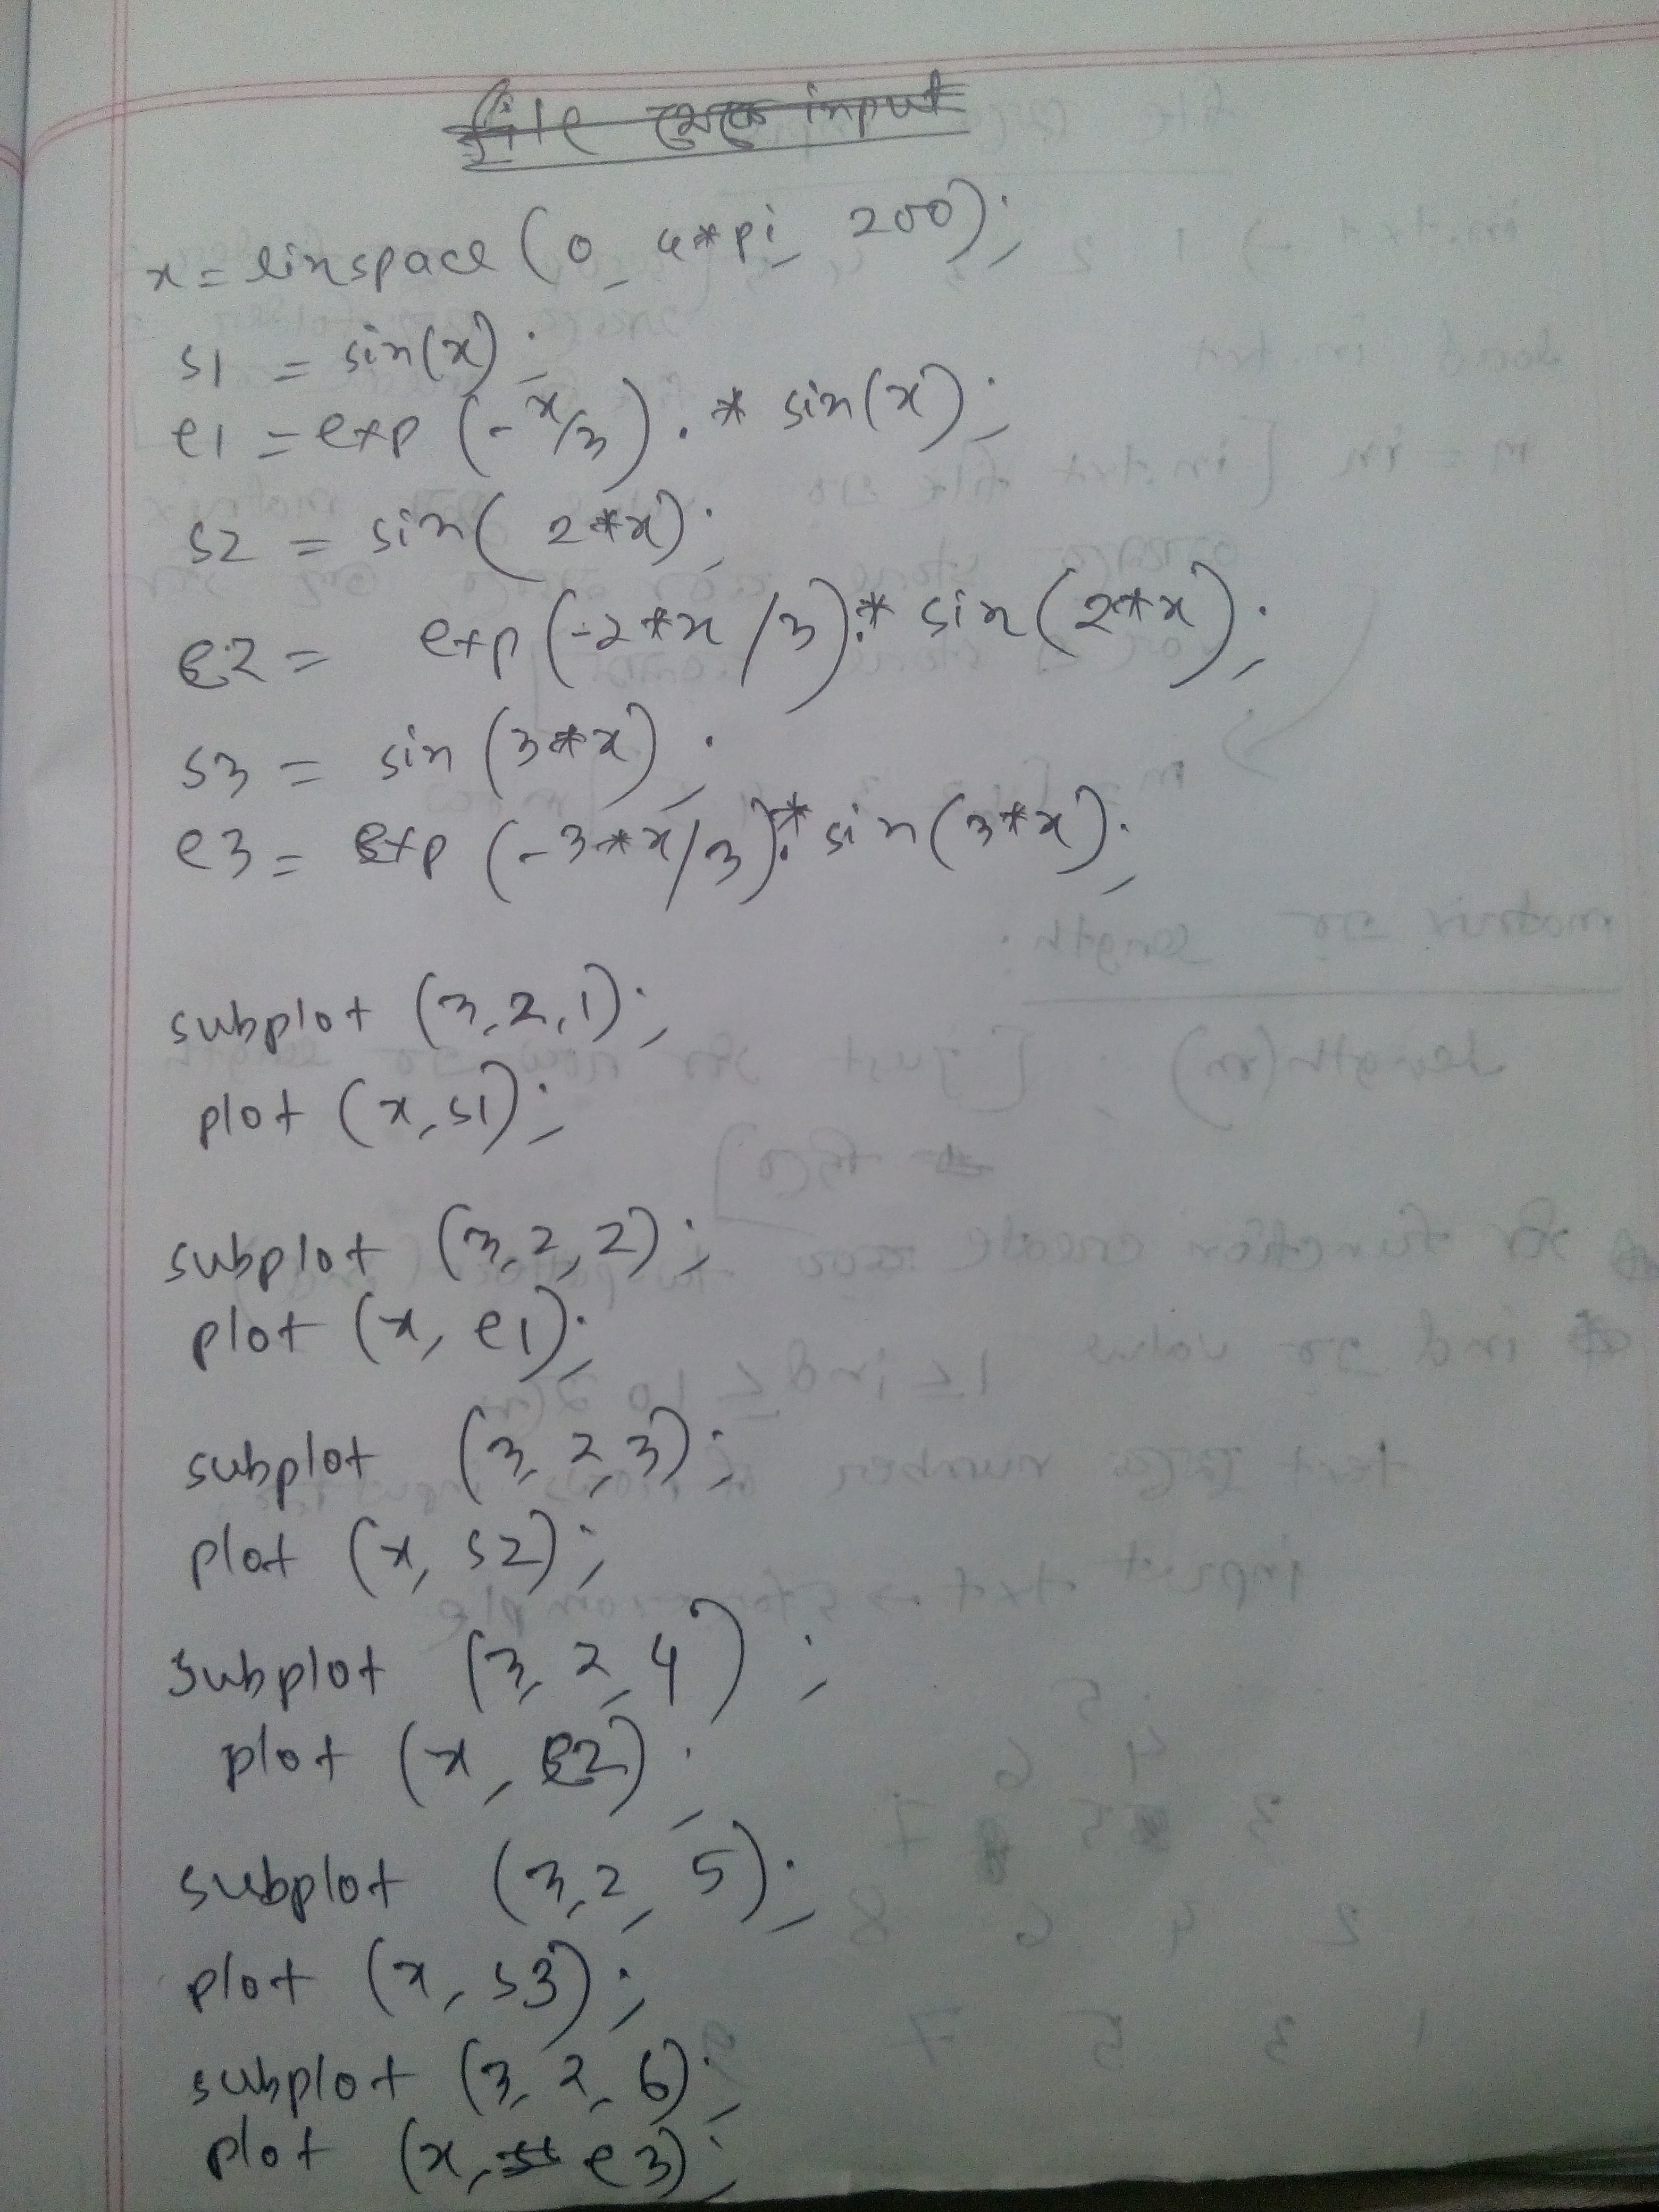 file থেকে input
x = linspace (0, 4*pi, 200);
s1 = sin(x);
e1 = exp (-x/3) .* sin(x);
s2 = sin( 2*x);
e2 = exp(-2*x/3).* sin(2*x);
s3 = sin (3*x) ;
e3 = exp (-3*x/3).* sin(3*x);
subplot (3,2,1);
plot (x,s1);
subplot (3,2,2);
plot (x, e1);
subplot (3,2,3);
plot (x, s2);
subplot (3,2,4) ;
plot (x, e2) ;
subplot (3,2,5);
plot (x, s3);
subplot (3,2,6);
plot (x, e3);